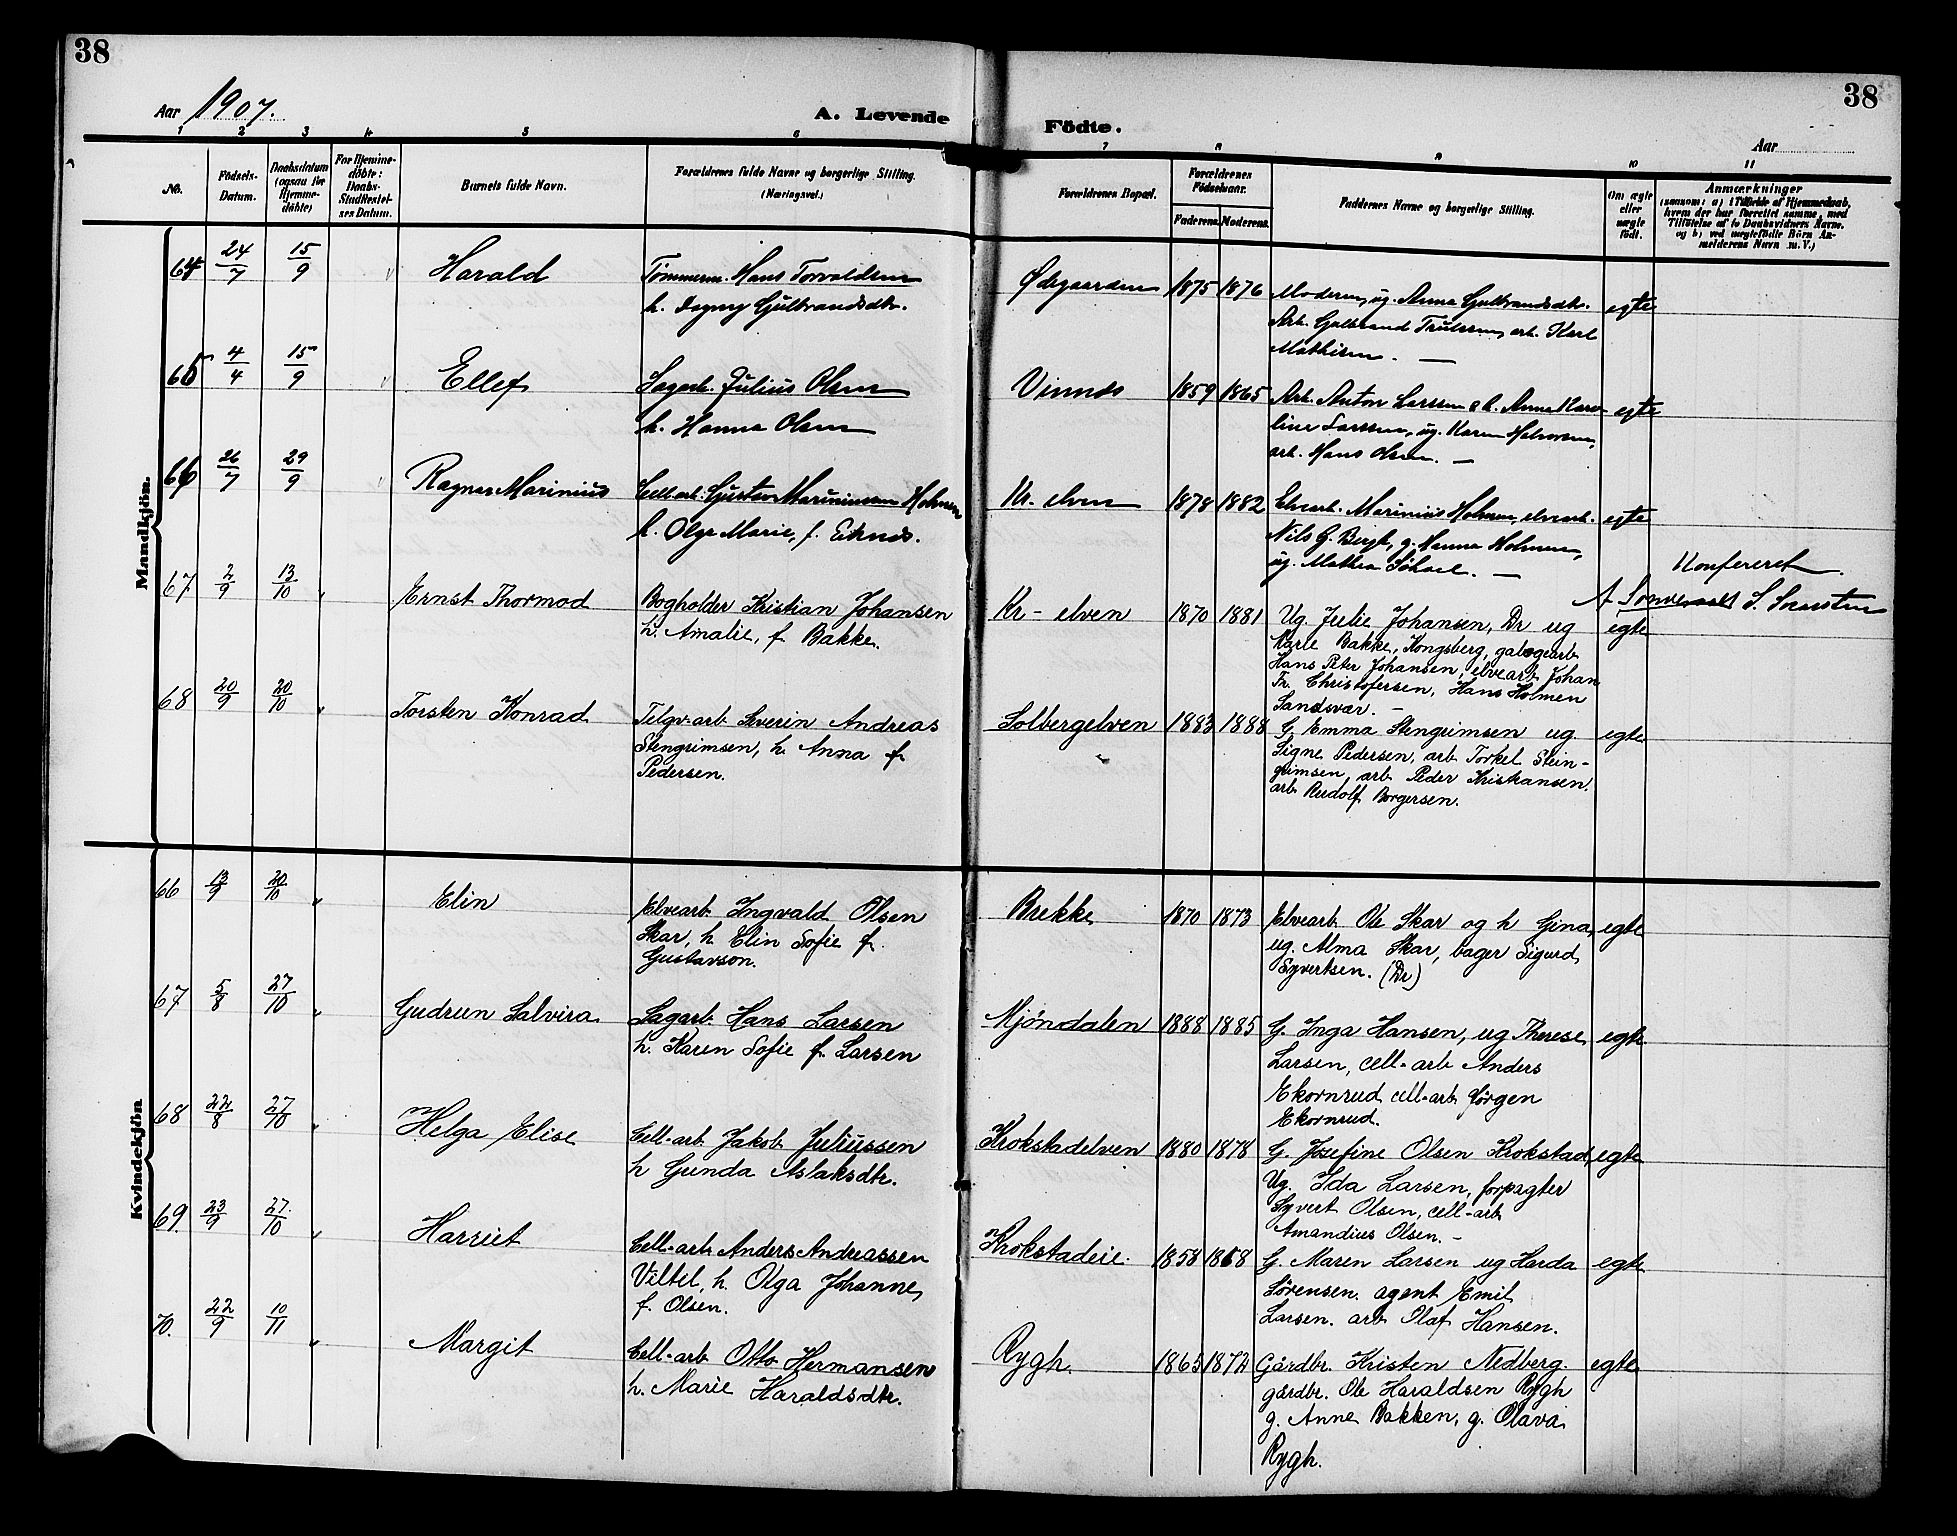 38
38
Aar 1907.
A. Levende
Födte.
Aar
1 2 3 4 5 6 7 8 9 10 11
No.
Födsels-
Datum.
Daabsdatum
(ogsaa for
Hjemme-
döbte)
For Hjemme-
döbte:
Daabs-
Stadfæstel-
ses Datum.
Barnets fulde Navn.
Forældrenes fulde Navne og borgerlige Stilling.
(Næringsvei.)
Forældrenes Bopæl.
Forældrenes
Födselsaar.
Faderens. Moderens.
Faddernes Navne og borgerlige Stilling.
Om ægte
eller
uægte
födt.
Anmærkninger
(saasom: a) i Tilfælde af Hjemmedaab,
hvem der har forrettet samme, med
Tilföielse af to Daabsvidners Navne,
og b) ved uægtefödte Börn An-
melderens Navn m. V.)
Mandkjön.
64 24/7 15/9 Harald Tømmerm. Hans Torvaldsen Ødegaarden 1875 1876 Moderen, ug. Anna Gulbrandsdtr. egte
h. Dagny Gulbrandsdtr. Arb. Gulbrand Trulssen, arb. Karl
Mathisen. —
65 4/4 15/9 Ellef Sagarb. Julius Olsen Vinnds 1859 1865 Arb. Anton Larssen, h. Anna Karo- egte
h. Hanna Olsen line Larssen, ug. Karen Halvorsen,
arb. Hans Olsen. —
66 26/7 29/9 Ragnar Marinius Cell.arb. Gustav Mariniussen Holmen Kr. elven 1878 1882 Elvearb. Marinius Holmen, elvearb. egte
h. Olga Marie, f. Eknes. Nils G. Bergt, g. Hanna Holmen,
ug. Mathea Søhoel. —
Konfereret
67 2/9 13/10 " Ernst Thormod Bogholder Kristian Johansen Kr- elven 1870 1881 Ug. Julie Johansen, Dr ug egte
h. Amalie, f Bakke. Karle Bakke, Kongsberg, gabogearb
Hans Peter Johansen, elvearb. Johan
Fr. Christofersen, Hans Holmen
Sandsvær. —
68 20/9 20/10 " Torsten Konrad Telgv.arb Severin Andreas Solbergelven 1883 1888 G. Emma Stengrimsen ug. egte
Stengrimsen, h. Anna f. Signe Pedersen, arb Torkel Stein-
Pedersen. grimsen, arb Peder Kristiansen.
arb Rudolf Borgersen.
Kvindekjön
66 13/9 20/10 " Elin Elvearb. Ingvald Olsen Brekke 1870 1873 Elvearb Ole Skar og h Gina, egte
Skar, h Elin Sofie f. ug. Alma Skar, bager Sigurd
Gustavson. Syvertsen. (Dr)
67 5/8 27/10 " Gudrun Salvira Sagarb. Hans Larsen Mjöndalen 1888 1885 G. Inga Hansen, ug Therese egte
h. Karen Sofie f. Larsen Larsen, cell-arb Anders
Ekornrud cell-arb Jörgen
Ekornrud.
68 22/8 27/10 " Helga Elise Cell-arb Jakob Juliussen Krokstadelven 1880 1878 G. Josefine Olsen Krokstad, egte
h Gunda Aslaksdtr. Ug. Ida Larsen, forpagter
Syvert Olsen, cell-arb
Amandius Olsen. —
69 23/9 27/10 " Harriet Cell-arb Anders Andreassen Krokstadeie. 1858 1868 G. Maren Larsen ug Harda egte
Viltel, h. Olga Johanne, Sörensen. agent Emil
f. Olsen. Larsen. arb Olaf Hansen.
70. 22/9 10/11 " Margit Cell-arb Otto Hermansen Rygh. 1865 1872 Gårdbr. Kristen Nedberg. egte
h. Marie Haraldsdtr. gårdbr. Ole Haraldsen Rygh
g. Anne Bakken, g. Olava
Rygh.